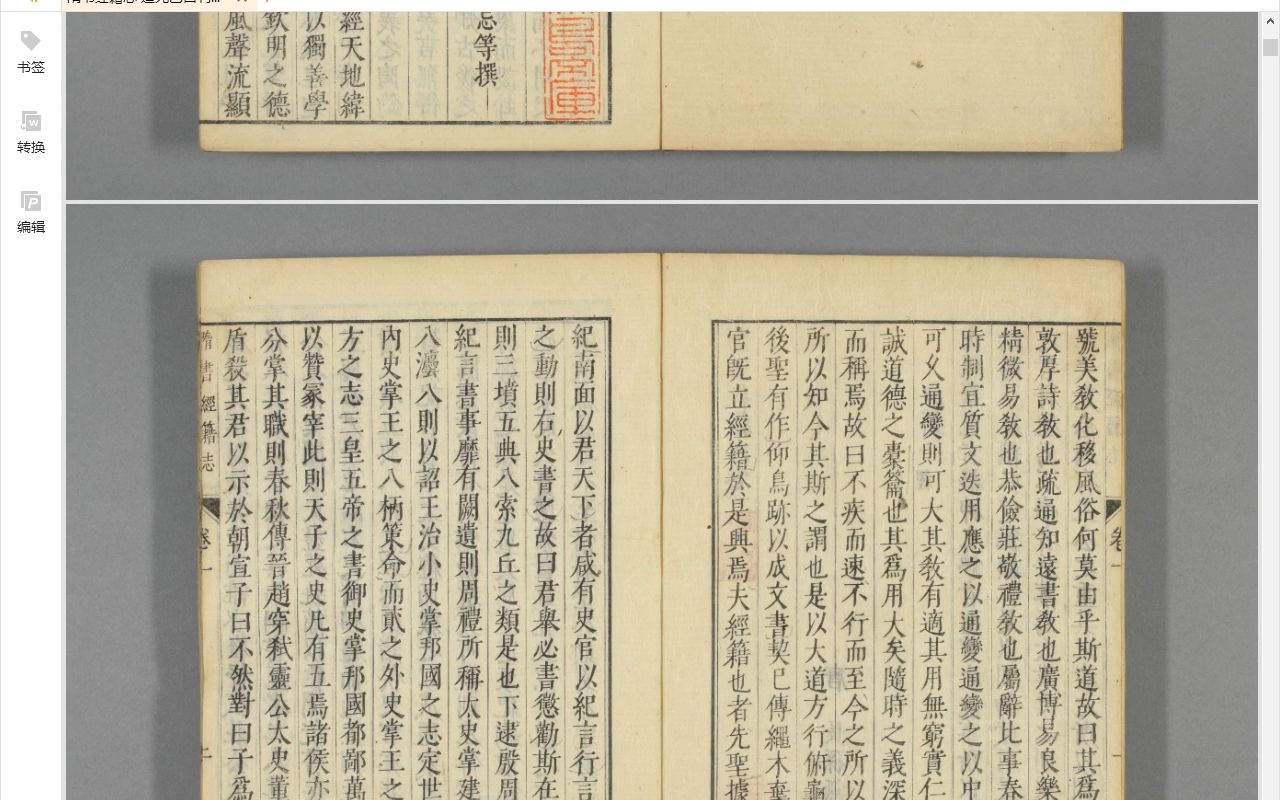 书签
转换
编辑
忌等撰
經天地緯
以獨善學
欽明之德
風聲流顯
卷一
號美教化移風俗何莫由乎斯道故曰其爲
敦厚詩教也疏通知遠書教也廣博易良樂
精微易教也恭儉莊敬禮教也屬辭比事春
時制宜質文迭用應之以通變通變之以中
可乆通變則可大其教有適其用無窮實仁
誠道德之橐籥也其爲用大矣隨時之義深
而稱焉故曰不疾而速不行而至今之所以
所以知今其斯之謂也是以大道方行俯龜
後聖有作仰鳥跡以成文書契已傳繩木棄
官旣立經籍於是興焉夫經籍也者先聖據
紀南面以君天下者咸有史官以紀言行言
之動則右史書之故曰君舉必書懲勸斯在
則三墳五典八索九丘之類是也下逮殷周
紀言書事靡有闕遺則周禮所稱太史掌建
八灋八則以詔王治小史掌邦國之志定世
內史掌王之八柄策命而貳之外史掌王之
方之志三皇五帝之書御史掌邦國都鄙萬
以贊冢宰此則天子之史凡有五焉諸侯亦
分掌其職則春秋傳晉趙穿弑靈公太史董
盾殺其君以示於朝宣子曰不然對曰子爲
隋書經籍志 卷一